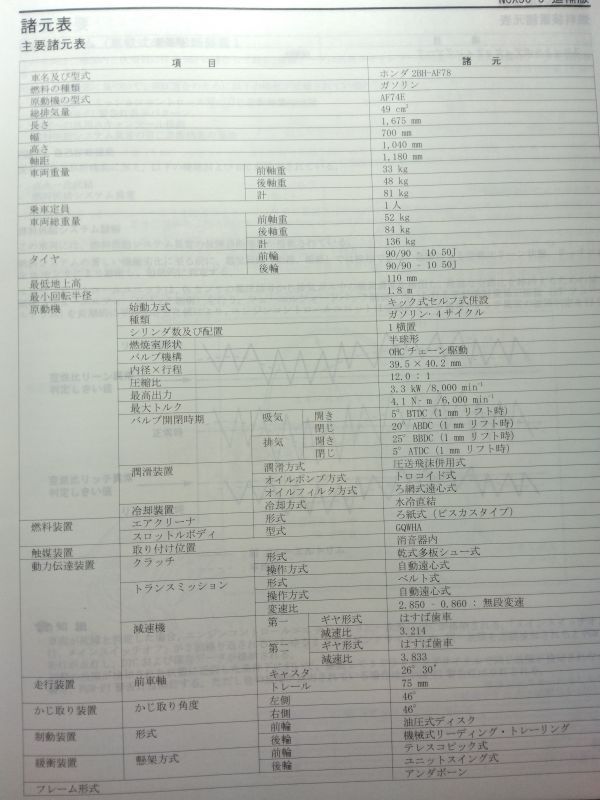 諸元表
主要諸元表
項 目 諸 元
車名及び型式 ホンダ 2BH-AF78
燃料の種類 ガソリン
原動機の型式 AF74E
総排気量 49 cm³
長さ 1,675 mm
幅 700 mm
高さ 1,040 mm
軸距 1,180 mm
車両重量 前軸重 33 kg
後軸重 48 kg
計 81 kg
乗車定員 1 人
車両総重量 前軸重 52 kg
後軸重 84 kg
計 136 kg
タイヤ 前輪 90/90 - 10 50J
後輪 90/90 - 10 50J
最低地上高 110 mm
最小回転半径 1.8 m
原動機 始動方式 キック式セルフ式併設
種類 ガソリン・4サイクル
シリンダ数及び配置 1 横置
燃焼室形状 半球形
バルブ機構 OHC チェーン駆動
内径×行程 39.5 × 40.2 mm
圧縮比 12.0 : 1
最高出力 3.3 kW /8,000 min⁻¹
最大トルク 4.1 N・m /6,000 min⁻¹
バルブ開閉時期 吸気 開き 5° BTDC (1 mm リフト時)
閉じ 20° ABDC (1 mm リフト時)
排気 開き 25° BBDC (1 mm リフト時)
閉じ 5° ATDC (1 mm リフト時)
潤滑装置 潤滑方式 圧送飛沫併用式
オイルポンプ方式 トロコイド式
オイルフィルタ方式 ろ網式遠心式
冷却装置 冷却方式 水冷直結
燃料装置 エアクリーナ 形式 ろ紙式 (ビスカスタイプ)
スロットルボディ 型式 GQWHA
触媒装置 取り付け位置 消音器内
動力伝達装置 クラッチ 形式 乾式多板シュー式
操作方式 自動遠心式
トランスミッション 形式 ベルト式
操作方式 自動遠心式
変速比 2.850 - 0.860 : 無段変速
減速機 第一 ギヤ形式 はすば歯車
減速比 3.214
第二 ギヤ形式 はすば歯車
減速比 3.833
走行装置 前車軸 キャスタ 26° 30′
トレール 75 mm
かじ取り装置 かじ取り角度 左側 46°
右側 46°
制動装置 形式 前輪 油圧式ディスク
後輪 機械式リーディング・トレーリング
緩衝装置 懸架方式 前輪 テレスコピック式
後輪 ユニットスイング式
フレーム形式 アンダボーン